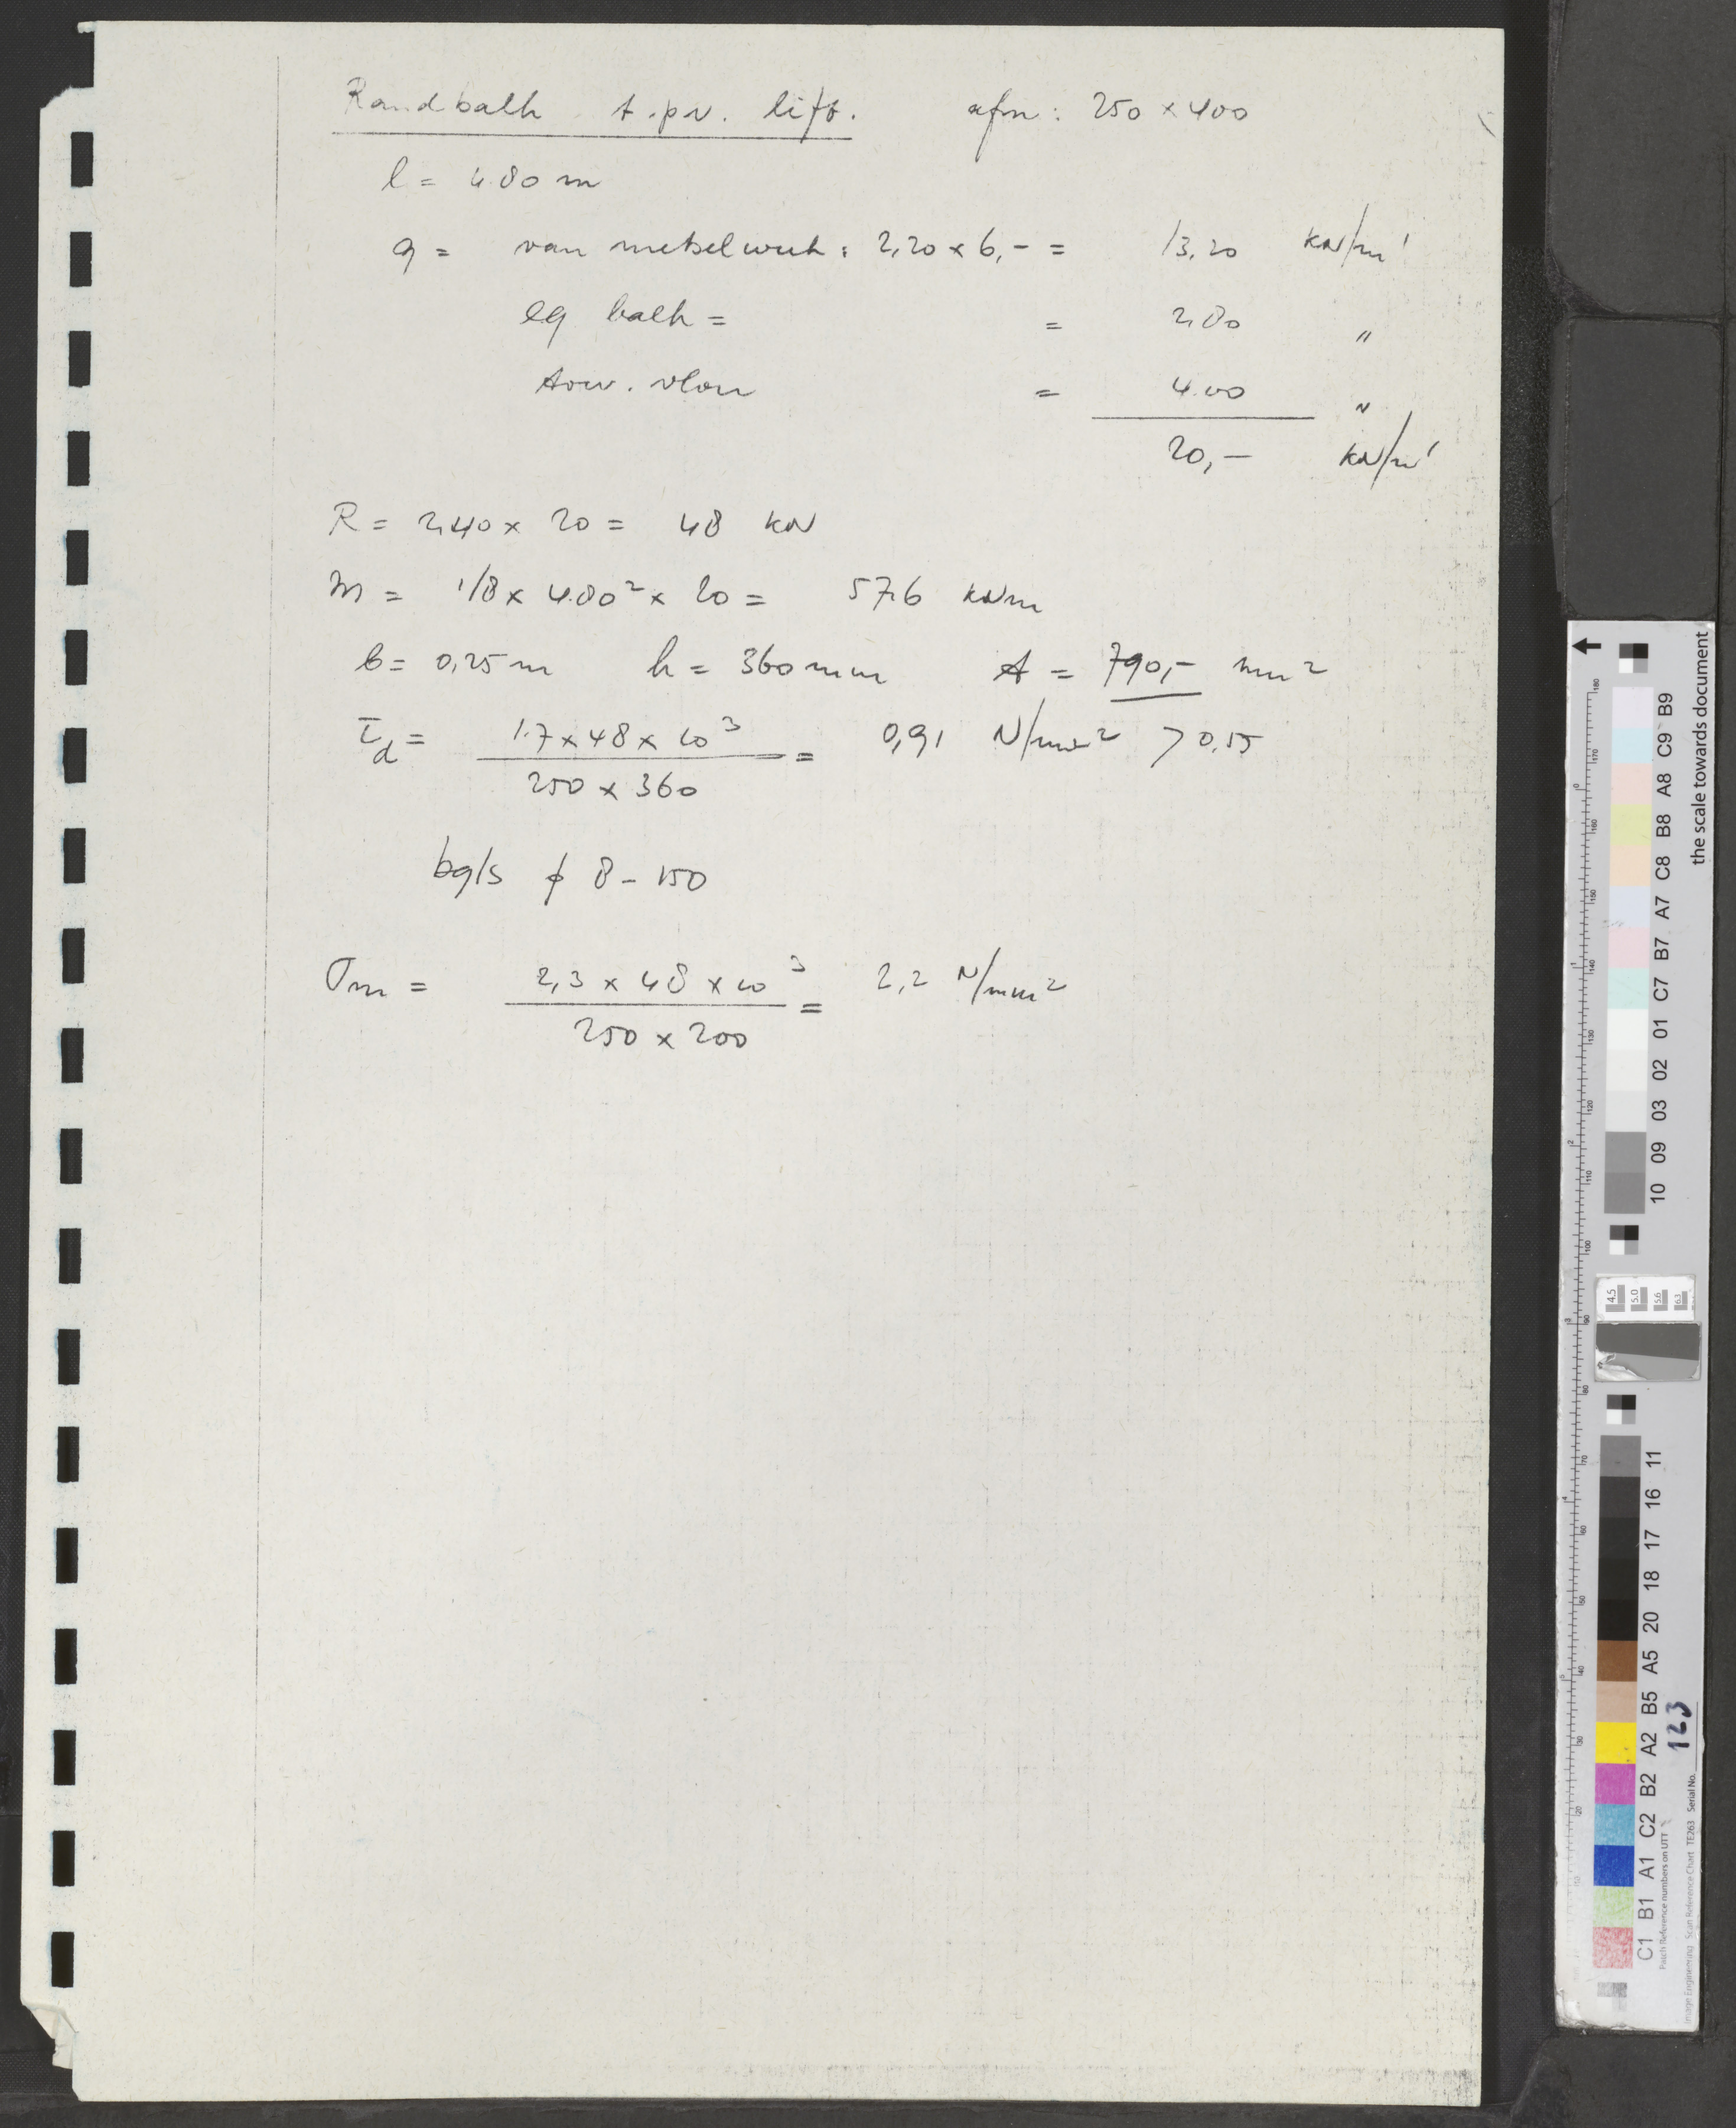 Randbalk t.p.v. lift. afm: 250 × 400
l = 4.80 m
q = van metselwerk: 2,20 × 6,- = 13,20 kN/m'
eg balk = = 2,80 "
vloer = 4.00 "
20,- kN/m'
R = 2,40 × 20 = 48 kN
M = 1/8 × 4.80² × 20 = 57,6 kNm
b = 0,25 m h = 360 mm A = 790,- mm²
τd = 1.7 × 48 × 10³ / 250 × 360 = 0,91 N/mm² > 0,55
bgls ϕ 8 - 150
σm = 2,3 × 48 × 10³ / 250 × 200 = 2,2 N/mm²
the scale towards document
B9 C9 A8 B8 C8 A7 B7 C7 01 02 03 09 10
4.5 5.0 5.6 6.3
11 16 17 18 20 A5 B5 A2 B2 C2 A1 B1 C1
Patch Reference numbers on UTT
Image Engineering Scan Reference Chart TE263 Serial No. 123